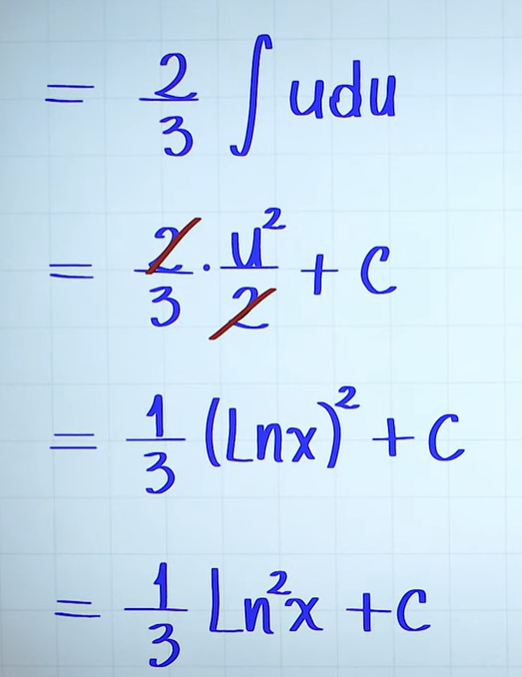 = 2/3 ∫ udu
= 2/3 · u²/2 + C
= 1/3 (Lnx)² + C
= 1/3 Ln²x + C